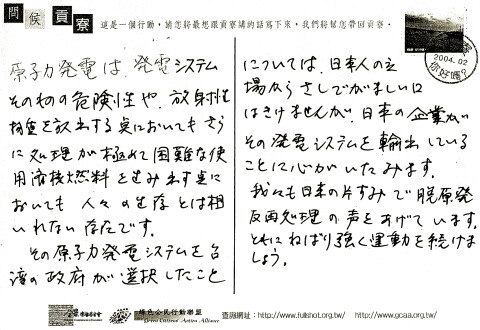 問候貢寮
這是一個行動，請您將最想跟貢寮講的話寫下來，我們將幫您帶回貢寮。
2004.02
你好嗎?
原子力発電は、発電システム
そのもの危険性や、放射性
物質を放出する点においてもさら
に処理が極めて困難な使
用済核燃料を生み出す点に
おいても、人々の生存とは相
いれない存在です。
その原子力発電システムを台
湾の政府が選択したこと
については、日本人の立
場からさしでがましい口
はきけませんが、日本の企業が
その発電システムを輸出している
ことに心がいたみます。
我々も日本の片すみで脱原発
反再処理の声をあげています。
ともにねばり強く運動を続けま
しょう。
綠色公民行動聯盟
Green Citizens' Action Alliance
查詢網址：http://www.fullshot.org.tw/ http://www.gcaa.org.tw/